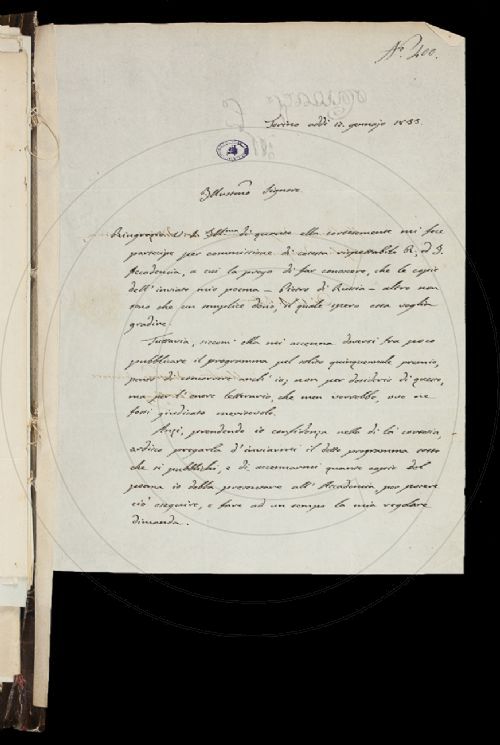 N.° 400.
Torino addì 12. gennajo 1833.
Illustrmo Signore.
Ringrazio V. S. Illma di quanto ella cortesemente mi fece
partecipe per commissione di cotesta rispettabile R. d. S.
Accademia, a cui la prego di far conoscere, che le copie
dell'inviato mio poema – Pietro di Russia – altro non
sono che un semplice dono, il quale spero essa voglia
gradire.
Tuttavia, siccome ella mi accenna doversi fra poco
pubblicare il programma pel solito quinquennale premio,
penso di concorrere anch'io, non per desiderio di questo,
ma per l'onore letterario, che men verrebbe, ove ne
fossi giudicato meritevole.
Anzi, prendendo io confidenza nella di lei cortesia,
ardisco pregarla d'inviarmi il detto programma tosto
che si pubblichi, e di accennarmi quante copie del
poema io debba presentare all'Accademia, per potere
ciò eseguire, e fare ad un tempo la mia regolare
dimanda.